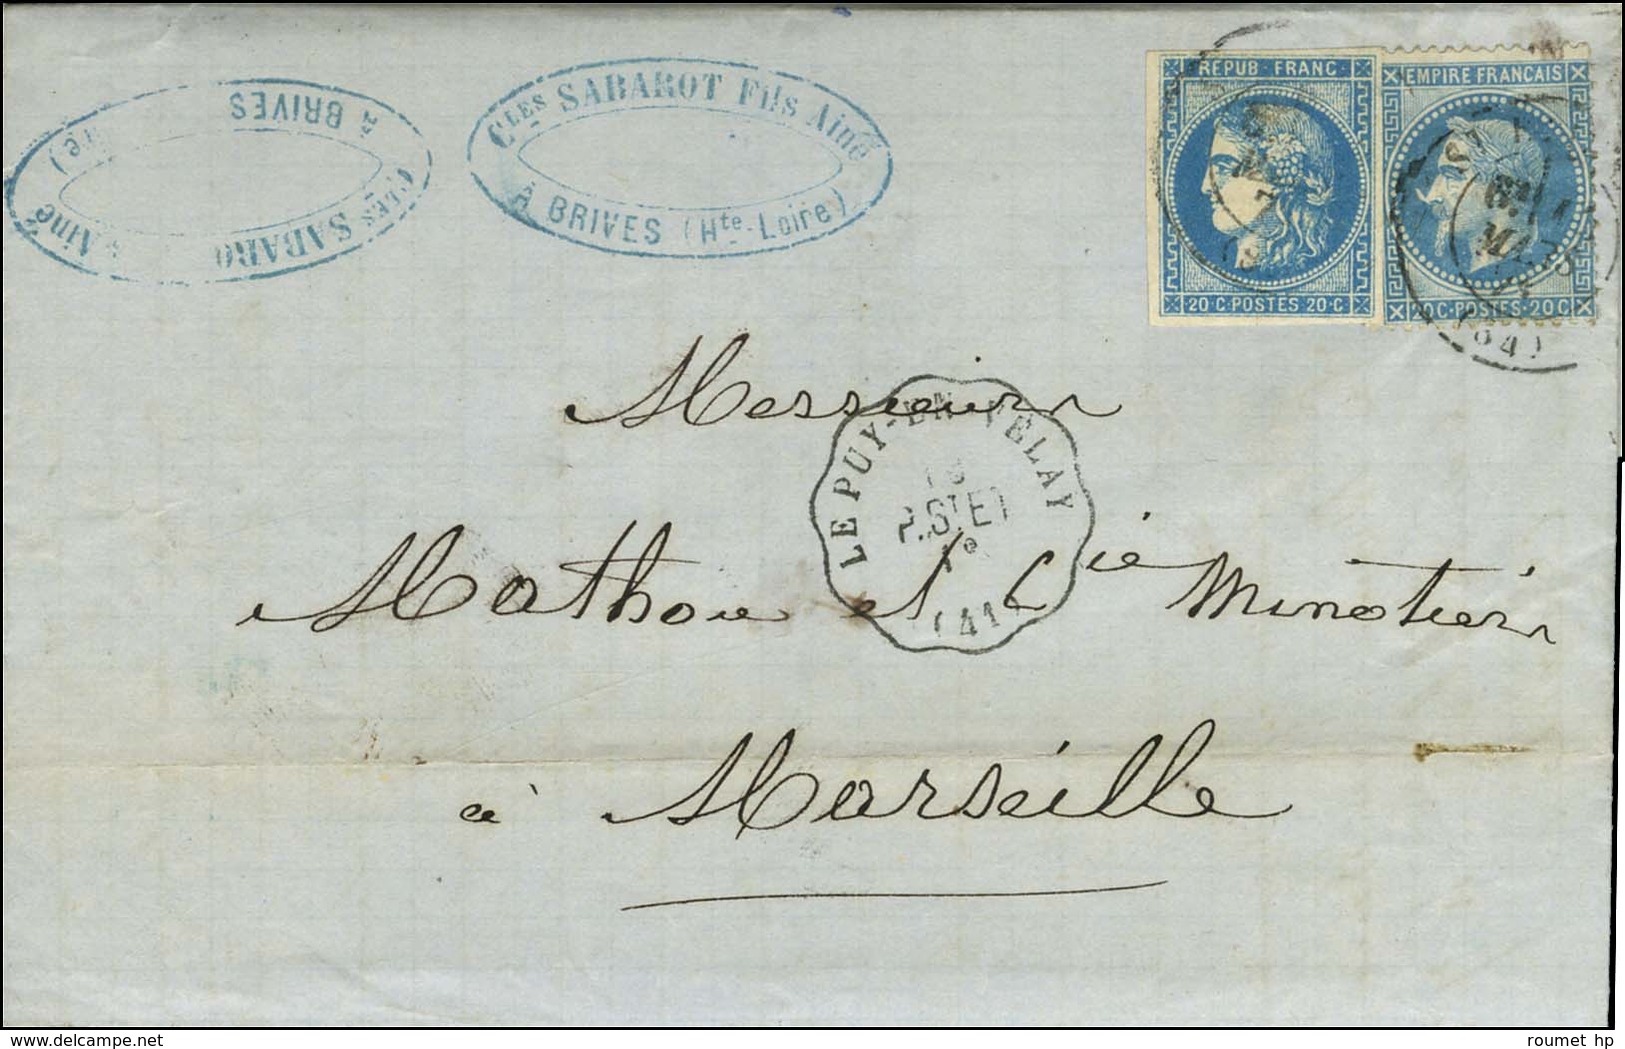 Cles SABAROT Fils Ainé
À BRIVES (Hte-Loire)
Cles SABARO
Ainé
à BRIVES
REPUB FRANC
20 C·POSTES 20 C
EMPIRE FRANCAIS
20 C·POSTES·20 C
(84)
LE PUY-EN-VELAY
P.ST ET
(41)
Messieurs
Mathon et Cie Minotiers
à Marseille
roumet hp